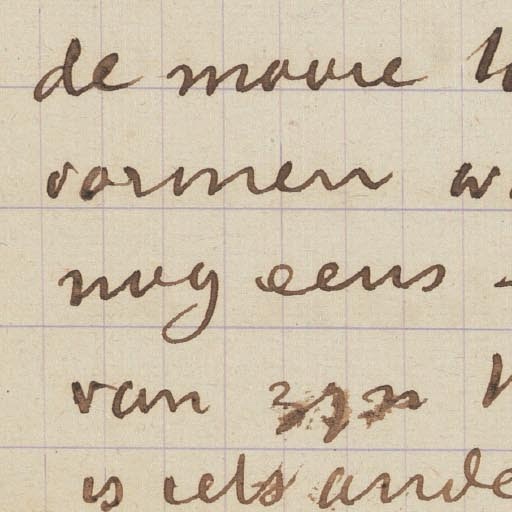 de mooie
vormen
nog eens
van zijn
is iets ande